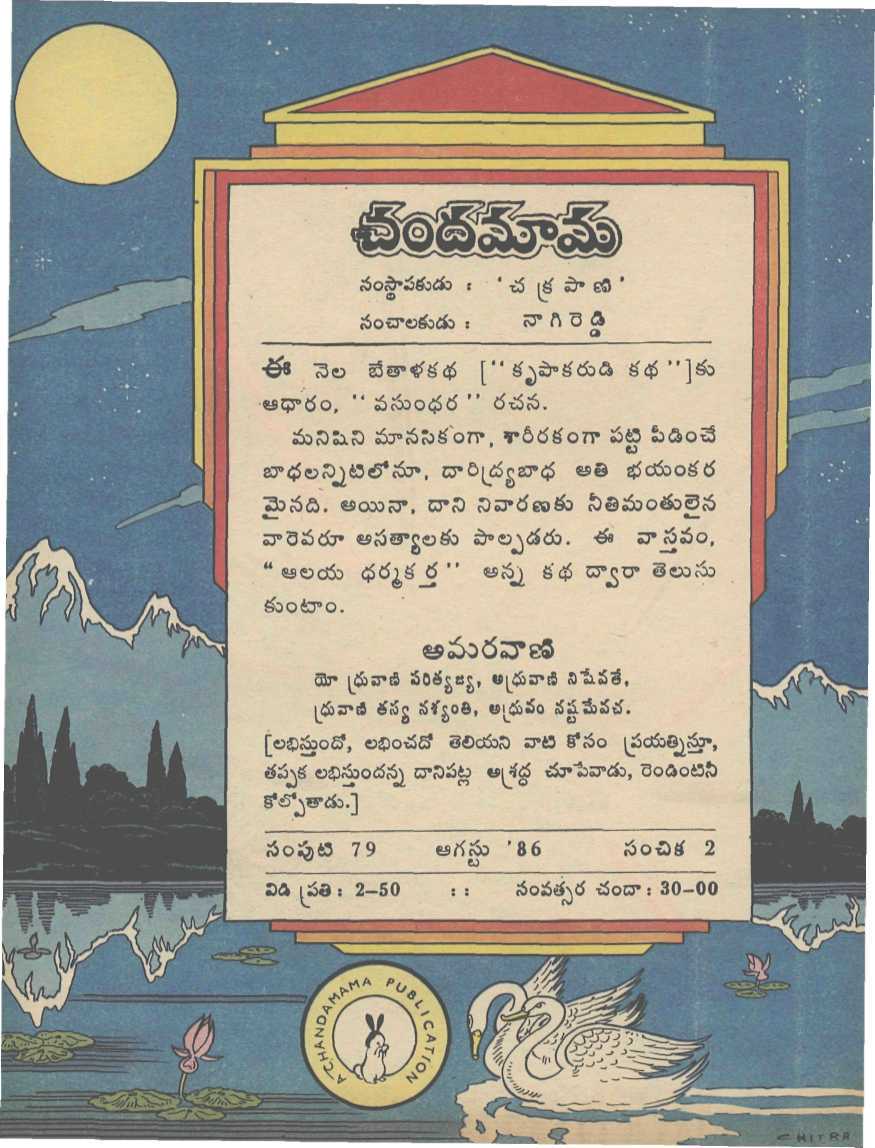 చందమామ
సంస్థాపకుడు : 'చక్రపాణి'
సంచాలకుడు : నాగిరెడ్డి
ఈ నెల బేతాళకథ ["కృపాకరుడి కథ"]కు
ఆధారం, "వసుంధర" రచన.
మనిషిని మానసికంగా, శారీరకంగా పట్టి పీడించే
బాధలన్నిటిలోనూ, దారిద్ర్యబాధ అతి భయంకర
మైనది. అయినా, దాని నివారణకు నీతిమంతులైన
వారెవరూ అసత్యాలకు పాల్పడరు. ఈ వాస్తవం,
"ఆలయ ధర్మకర్త" అన్న కథ ద్వారా తెలుసు
కుంటాం.
అమరవాణి
యో ధ్రువాణి పరిత్యజ్య, అధ్రువాణి నిషేవతే,
ధ్రువాణి తస్య నశ్యంతి, అధ్రువం నష్టమేవచ.
[లభిస్తుందో, లభించదో తెలియని వాటి కోసం ప్రయత్నిస్తూ,
తప్పక లభిస్తుందన్న దానిపట్ల అశ్రద్ధ చూపేవాడు, రెండింటినీ
కోల్పోతాడు.]
సంపుటి 79 ఆగస్టు '86 సంచిక 2
విడి ప్రతి : 2-50 :: సంవత్సర చందా : 30-00
A CHANDAMAMA PUBLICATION
CHITRA